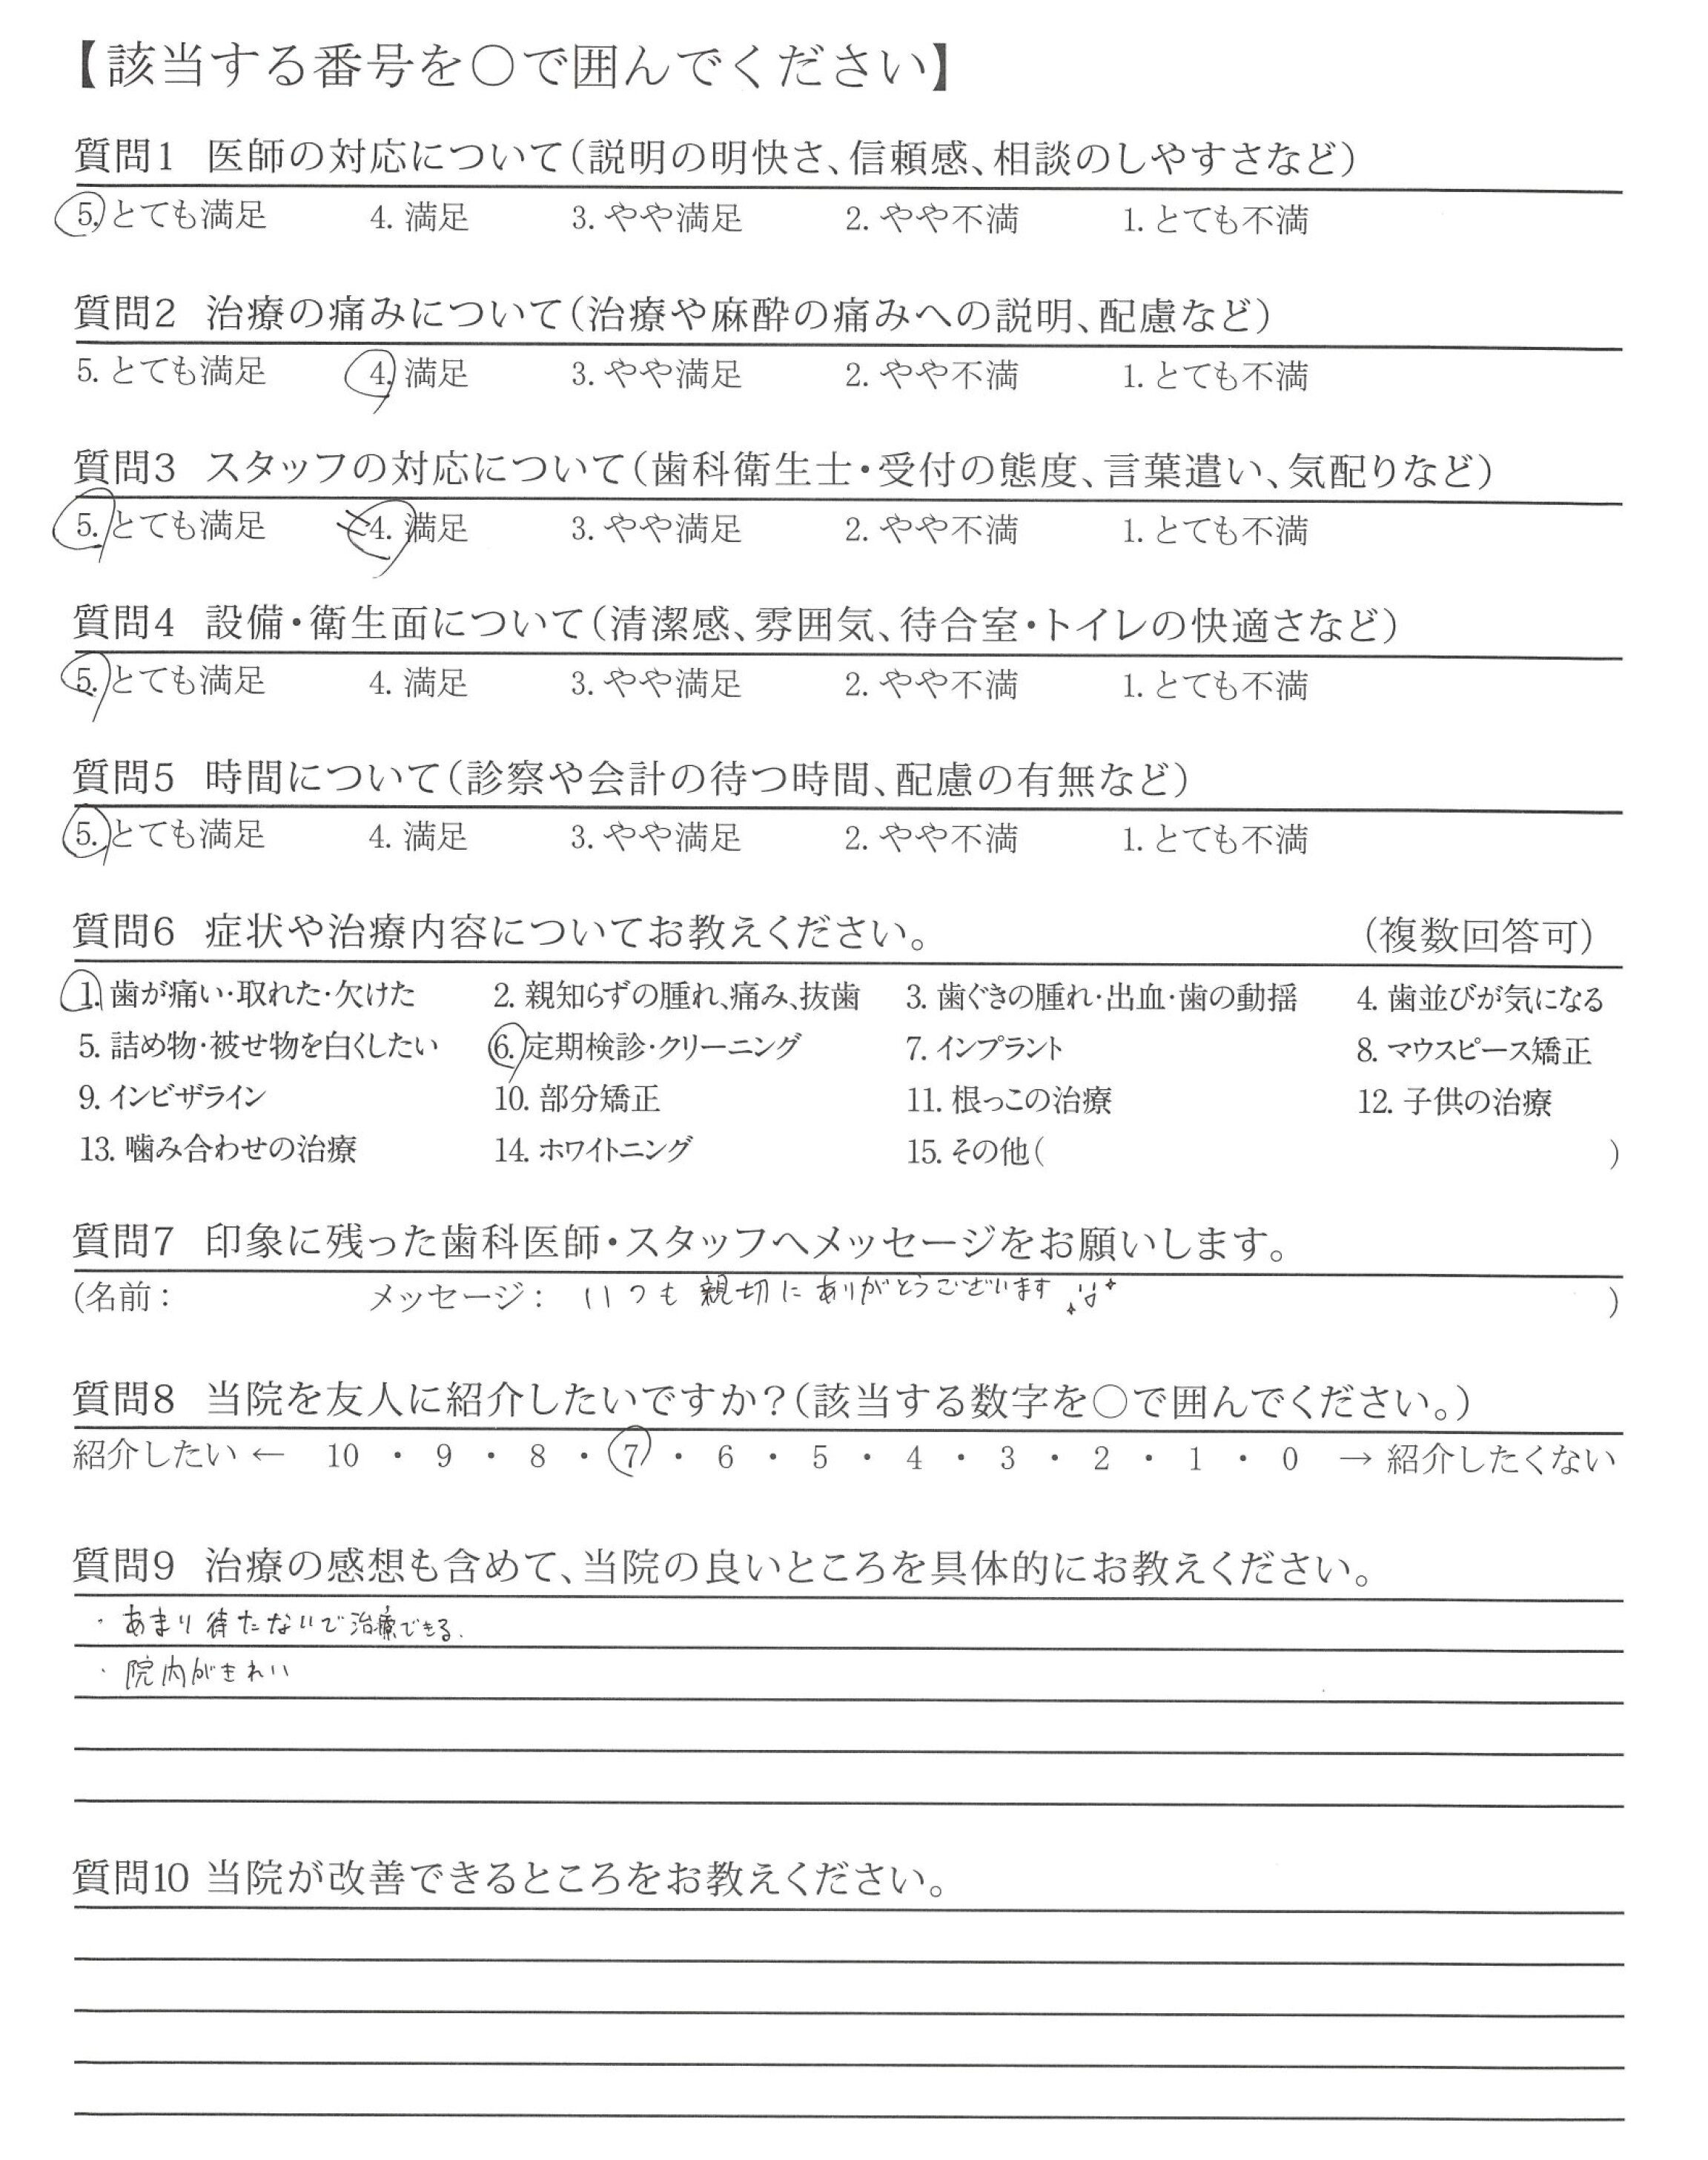 【該当する番号を○で囲んでください】
質問1 医師の対応について(説明の明快さ、信頼感、相談のしやすさなど)
5. とても満足 4. 満足 3. やや満足 2. やや不満 1. とても不満
質問2 治療の痛みについて(治療や麻酔の痛みへの説明、配慮など)
5. とても満足 4. 満足 3. やや満足 2. やや不満 1. とても不満
質問3 スタッフの対応について(歯科衛生士・受付の態度、言葉遣い、気配りなど)
5. とても満足 4. 満足 3. やや満足 2. やや不満 1. とても不満
質問4 設備・衛生面について(清潔感、雰囲気、待合室・トイレの快適さなど)
5. とても満足 4. 満足 3. やや満足 2. やや不満 1. とても不満
質問5 時間について(診察や会計の待つ時間、配慮の有無など)
5. とても満足 4. 満足 3. やや満足 2. やや不満 1. とても不満
質問6 症状や治療内容についてお教えください。 (複数回答可)
1. 歯が痛い・取れた・欠けた 2. 親知らずの腫れ、痛み、抜歯 3. 歯ぐきの腫れ・出血・歯の動揺 4. 歯並びが気になる
5. 詰め物・被せ物を白くしたい 6. 定期検診・クリーニング 7. インプラント 8. マウスピース矯正
9. インビザライン 10. 部分矯正 11. 根っこの治療 12. 子供の治療
13. 噛み合わせの治療 14. ホワイトニング 15. その他( )
質問7 印象に残った歯科医師・スタッフへメッセージをお願いします。
(名前: メッセージ: いつも親切にありがとうございます )
質問8 当院を友人に紹介したいですか?(該当する数字を○で囲んでください。)
紹介したい ← 10 ・ 9 ・ 8 ・ 7 ・ 6 ・ 5 ・ 4 ・ 3 ・ 2 ・ 1 ・ 0 → 紹介したくない
質問9 治療の感想も含めて、当院の良いところを具体的にお教えください。
・あまり待たないで治療できる.
・院内がきれい
質問10 当院が改善できるところをお教えください。